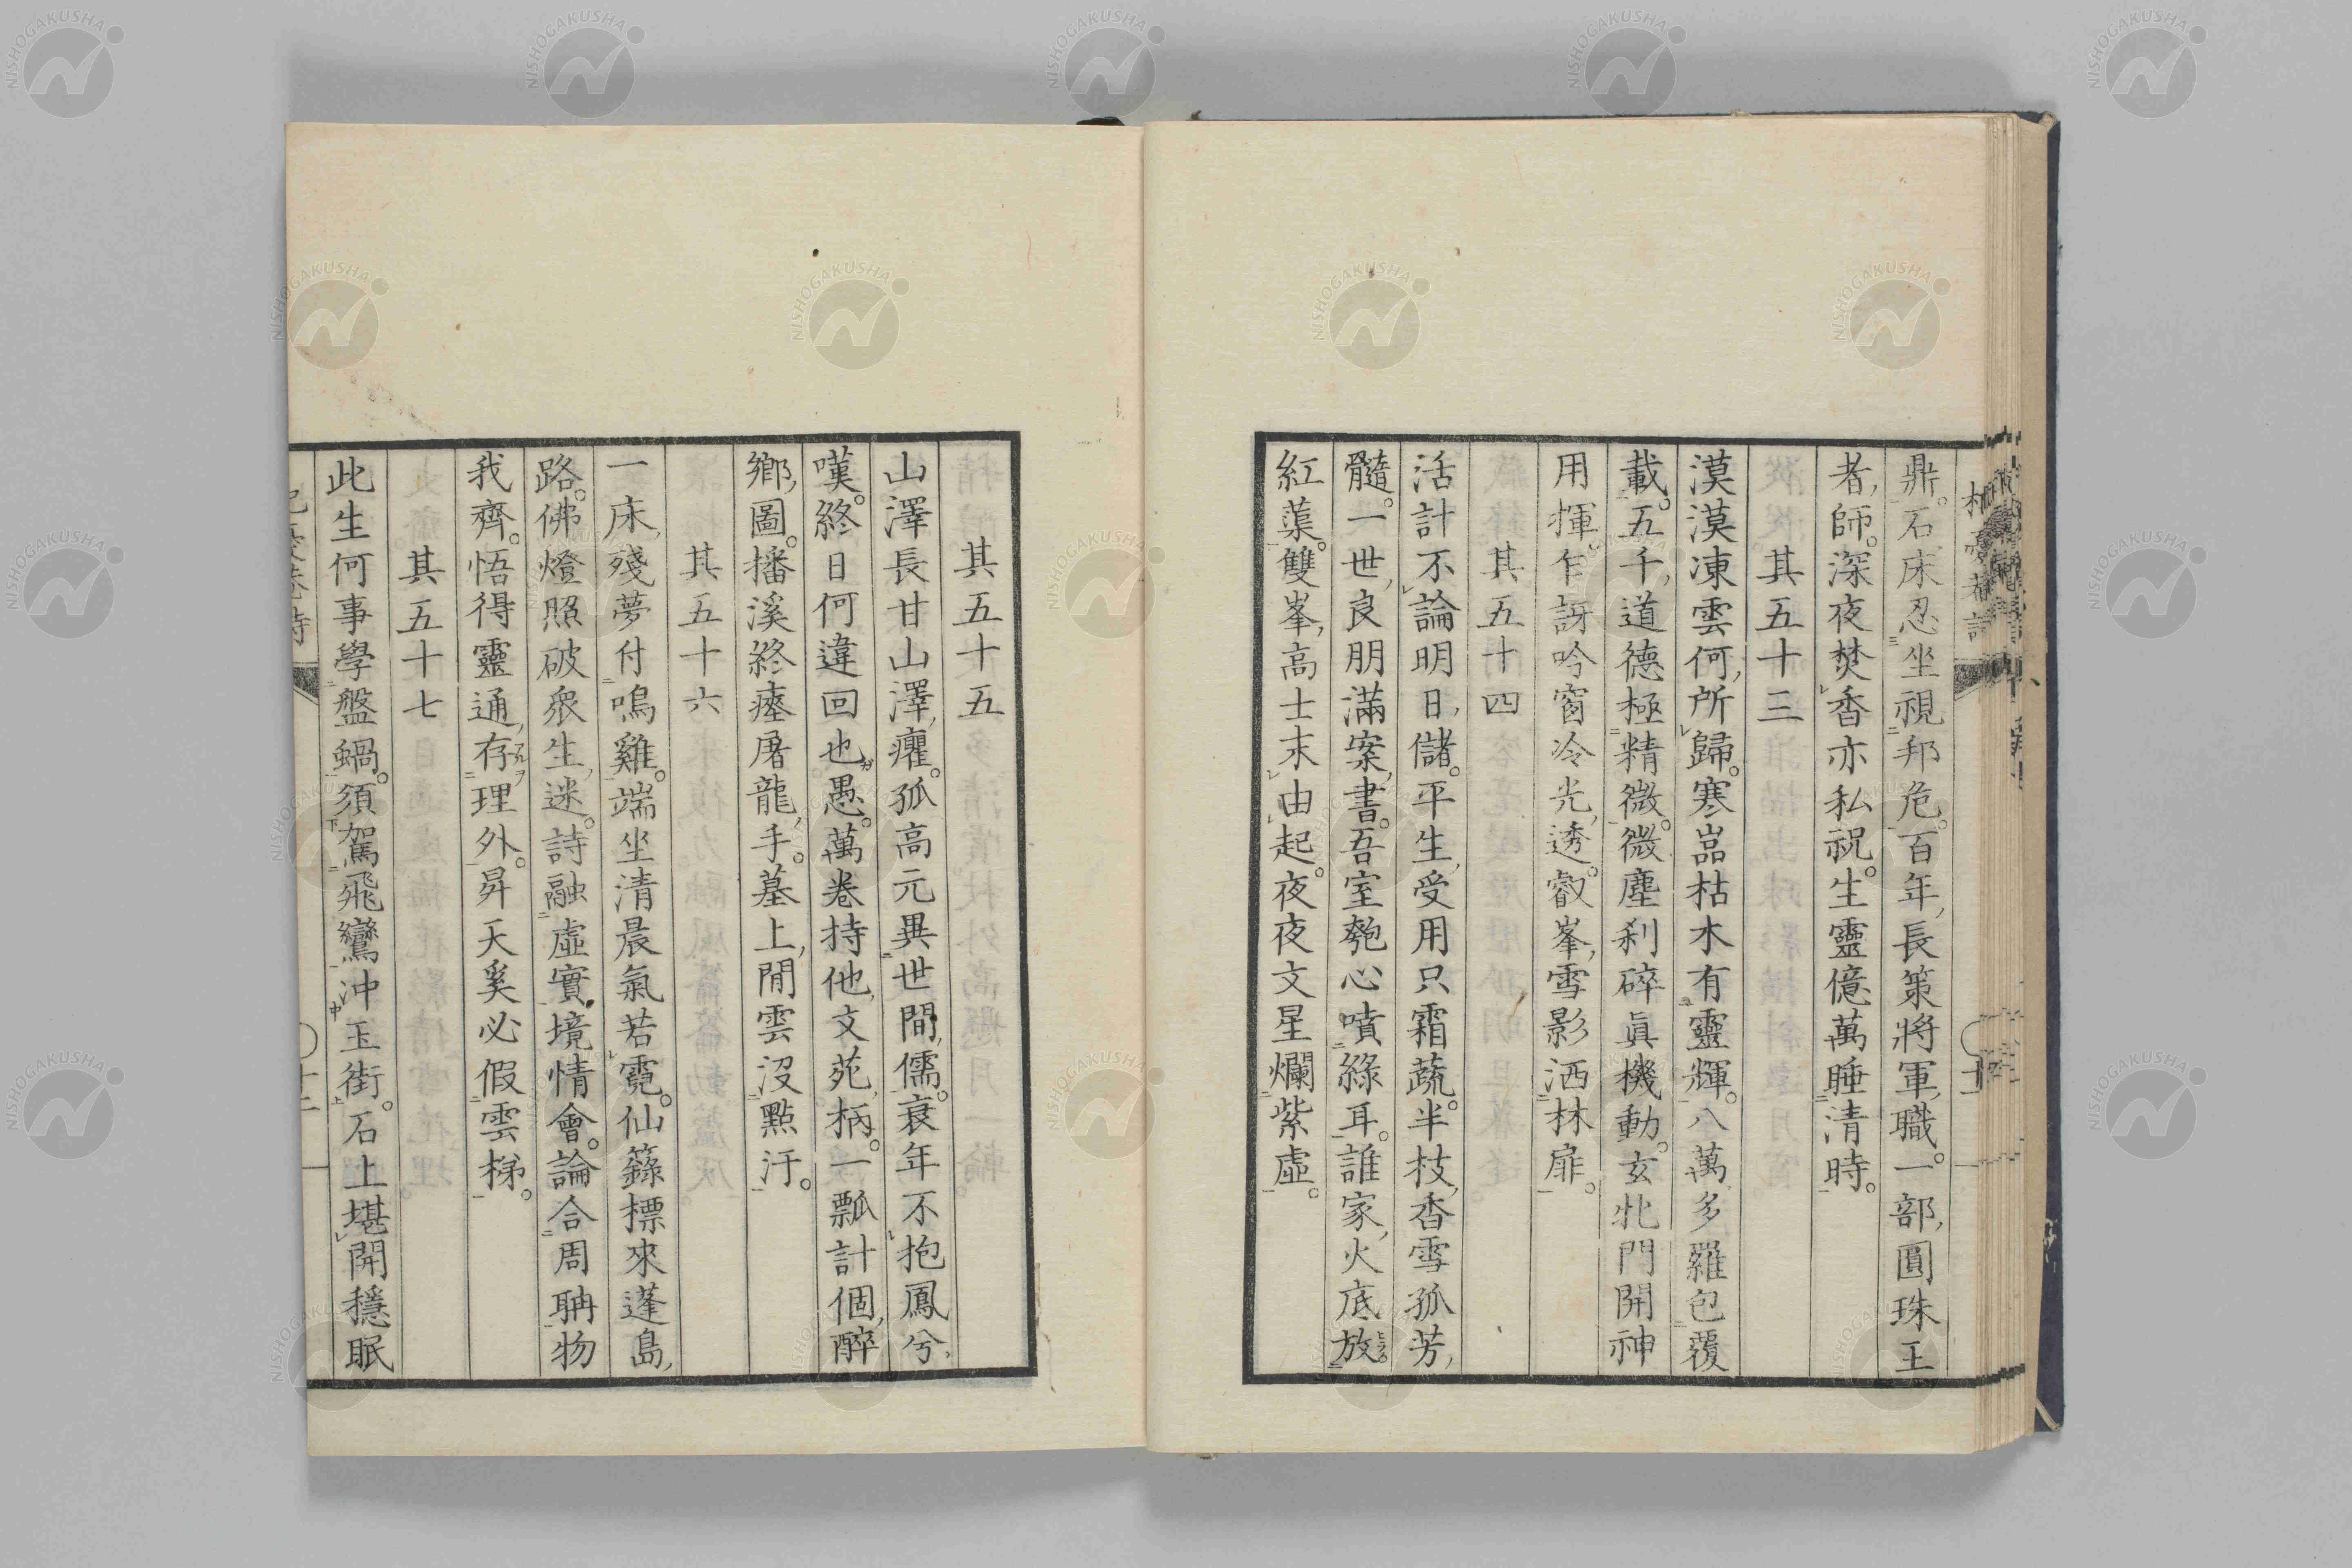 鼎。石床忍坐視邦危。百年、長策將軍、職。一部、圓珠王
者、師。深夜焚香亦私祝。生靈億萬睡清時。
其五十三
漠漠凍雲何、所歸。寒嵓枯木有靈輝。八萬多羅包覆
載。五千、道德極精微。微塵刹碎眞機動。玄牝門開神
用揮。乍訝吟窗冷光、透。叡峯、雪影洒林扉。
其五十四
活計不論明日、儲。平生、受用只霜蔬。半枝、香雪孤芳、
髓。一世、良朋滿案、書。吾室匏心噴綠耳。誰家、火底放
紅蕖。雙峯、高士末由起。夜夜文星爛紫虛。
其五十五
山澤長甘山澤、癯。孤高元異世間、儒。衰年不抱鳳兮、
嘆。終日何違回也愚。萬卷持他、文苑、柄。一瓢計個、醉
鄉、圖。播溪終瘞屠龍、手。墓上、閒雲沒點汙。
其五十六
一床、殘夢付鳴雞。端坐清晨氣若霓。仙籙標來蓬島、
路。佛燈照破眾生、迷。詩融虛實、境情會。論合周聃物
我齊。悟得靈通、存理外。昇天奚必假雲梯。
其五十七
此生何事學盤蝸。須駕飛鸞冲玉街。石上堪開穩眠
NISHOGAKUSHA